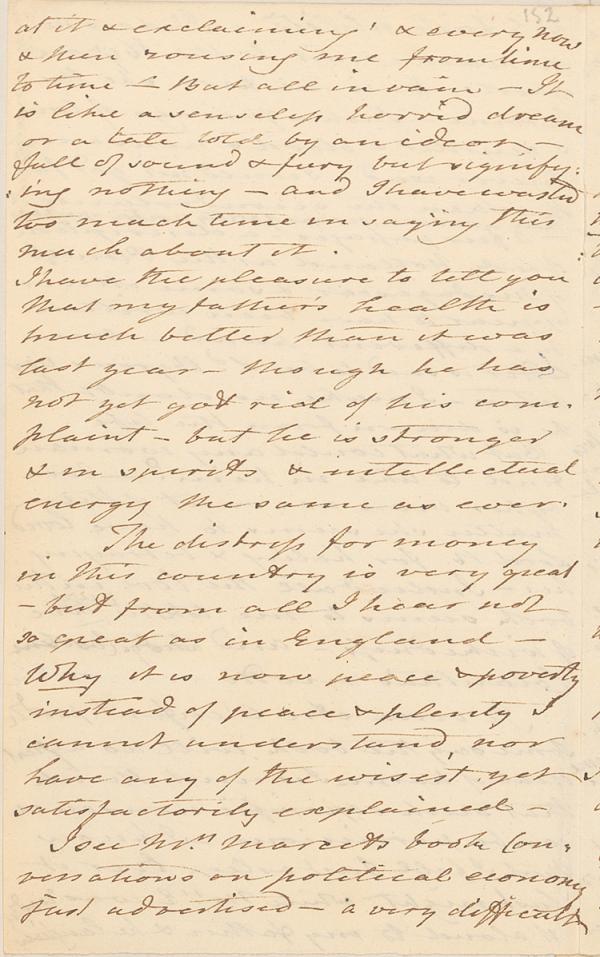 152
at it & exclaiming! & every now
& then rousing me from time
to time – But all in vain – It
is like a senseless horrid dream
or a tale told by an ideot –
full of sound & fury but signify:
:ing nothing – and I have wasted
too much time in saying this
much about it.
I have the pleasure to tell you
that my father's health is
much better than it was
last year – though he has
not yet got rid of his com:
plaint – but he is stronger
& in spirits & intellectual
energy the same as ever.
The distress for money
in this country is very great
– but from all I hear not
so great as in England –
Why it is now peace & poverty
instead of peace & plenty I
cannot understand, nor
have any of the wisest yet
satisfactorily explained –
I see Mrs Marcets book Con:
versations on political economy
just advertised – a very difficult